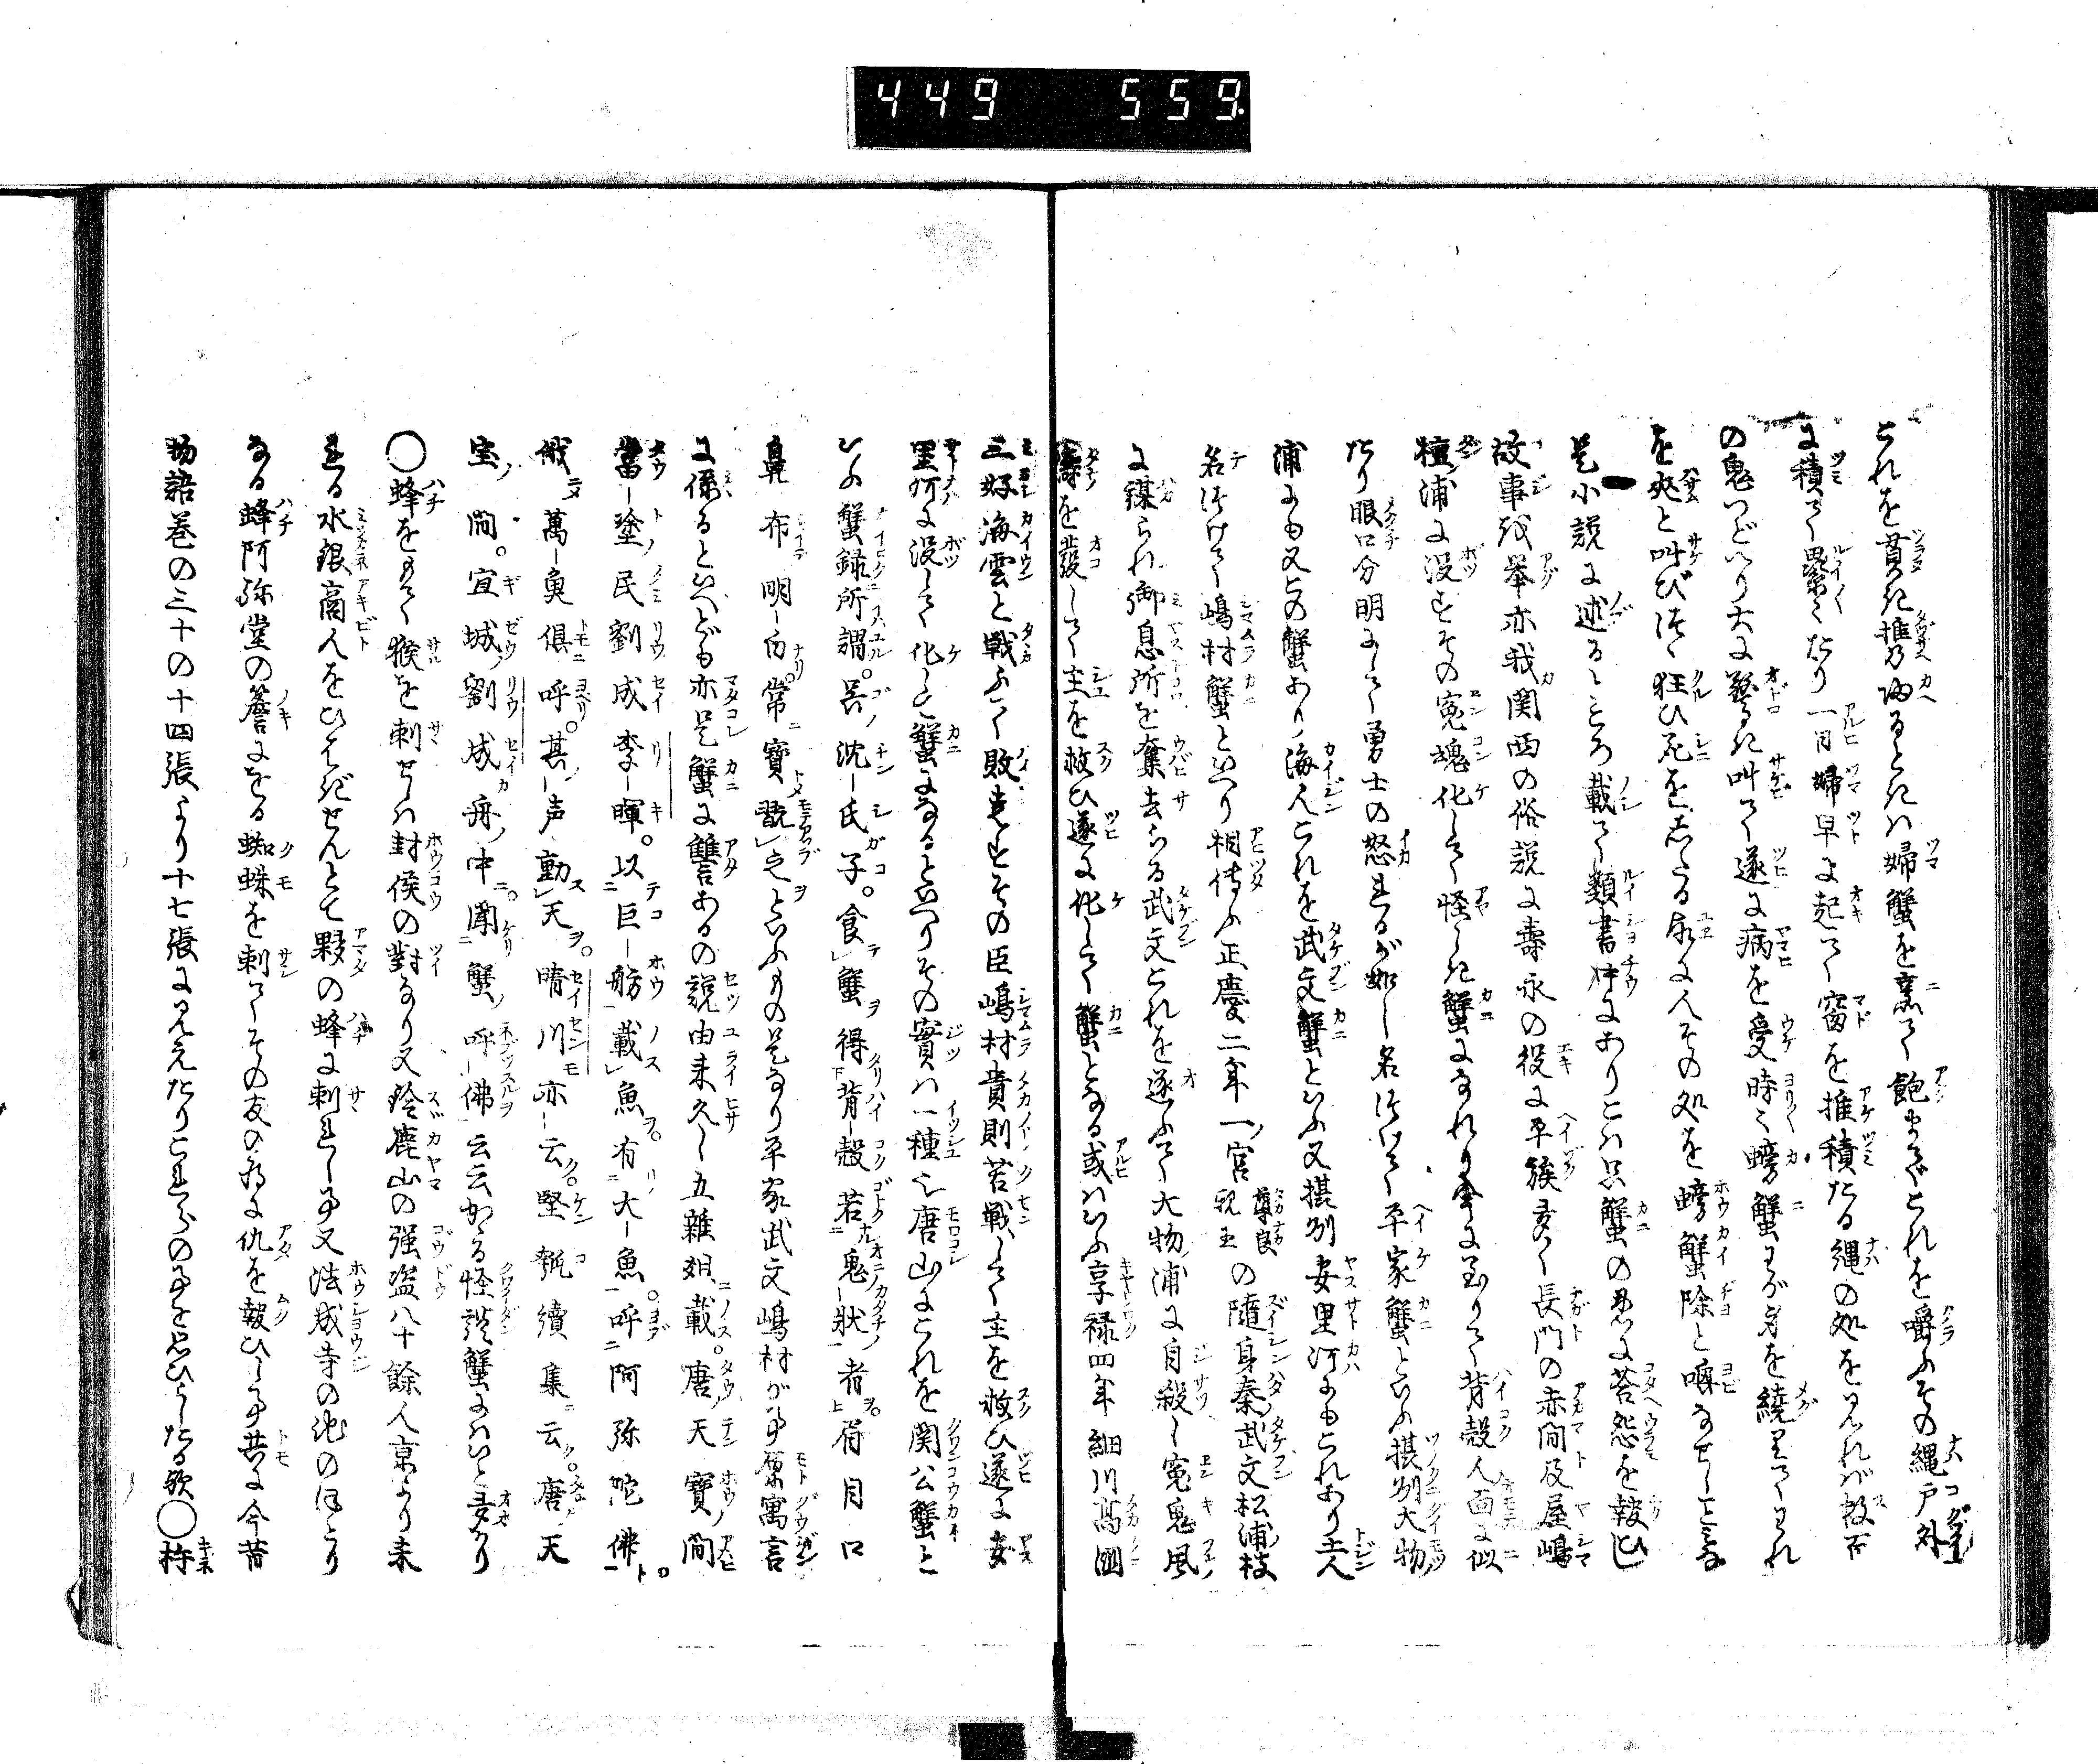 449 559
これを貫れ推乃𢌞るときハ婦蟹を煮て飽までこれを嚼ふその縄戸外
に積て累〻たり一日婦早に起て窗を推積たる縄の処を見れバ数百
の鬼つどへり大に驚き叫て遂に病を受時〻螃蟹わが身を繞るて
を夾と叫びつゝ狂ひ死をしたる故に人その処を螃蟹除と喚なせしとぞ
是小説に述るところ載て類書中にありこハ只蟹の君に荅怨を報ひし
故事を挙亦我関西の俗説に壽永の役に平族多く長門の赤間及屋嶋
檀浦に没しその寃魂化して怪しき蟹になれり今に至りて背殻人面に似
たり眼口分明にして勇士の怒れるが如し名づけて平家蟹といふ摂州大物
浦にも又この蟹あり海人これを武文蟹といふ又摂州妾里河にもこれあり土人
名づけて嶋村蟹といへり相傳ふ正慶二年一宮尊良親王の随身秦武文松浦が
に謀られ御息所を奪去らる武文これを逐ふて大物浦に自殺し寃鬼風
濤を發して主を救ひ遂に化して蟹となる或ハいふ享禄四年細川高國
三好海雲と戦ふて敗走しその臣嶋村貴則苦戦して主を救ひ遂に妾
里河に没して化して蟹になるといへりその實ハ一種也唐山にこれを関公蟹と
いふ蟹録所謂。呉沈氏子。食蟹得背殻若鬼状者眉目口
鼻布明白常寶翫之といふもの是なり平家武文嶋村が事原寓言
に係るといへども亦是蟹に讐あるの説由来久し五雜俎載。唐天寶間
當塗民劉成李暉。以巨舫載魚。有大魚。呼阿弥陀佛。
俄萬魚倶呼。其声動天。晴川亦云。堅瓠續集云。唐天
宝間。宣城劉成舟中。聞蟹呼佛云云かゝる怪談蟹にハいと多かり
○蜂をもて猴を刺せしハ封侯の對なり又鈴鹿山の强盗八十餘人京より来
れる水銀商人をひきはぎせんとて夥の蜂に刺れし事又法成寺の池のほとり
なる蜂阿弥堂の簷にをる蜘蛛を刺てその友の為に仇を報ひし事共に今昔
物語巻の三十の十四張より十七張に見えたりこれらの事を思ひよしたる歟○杵